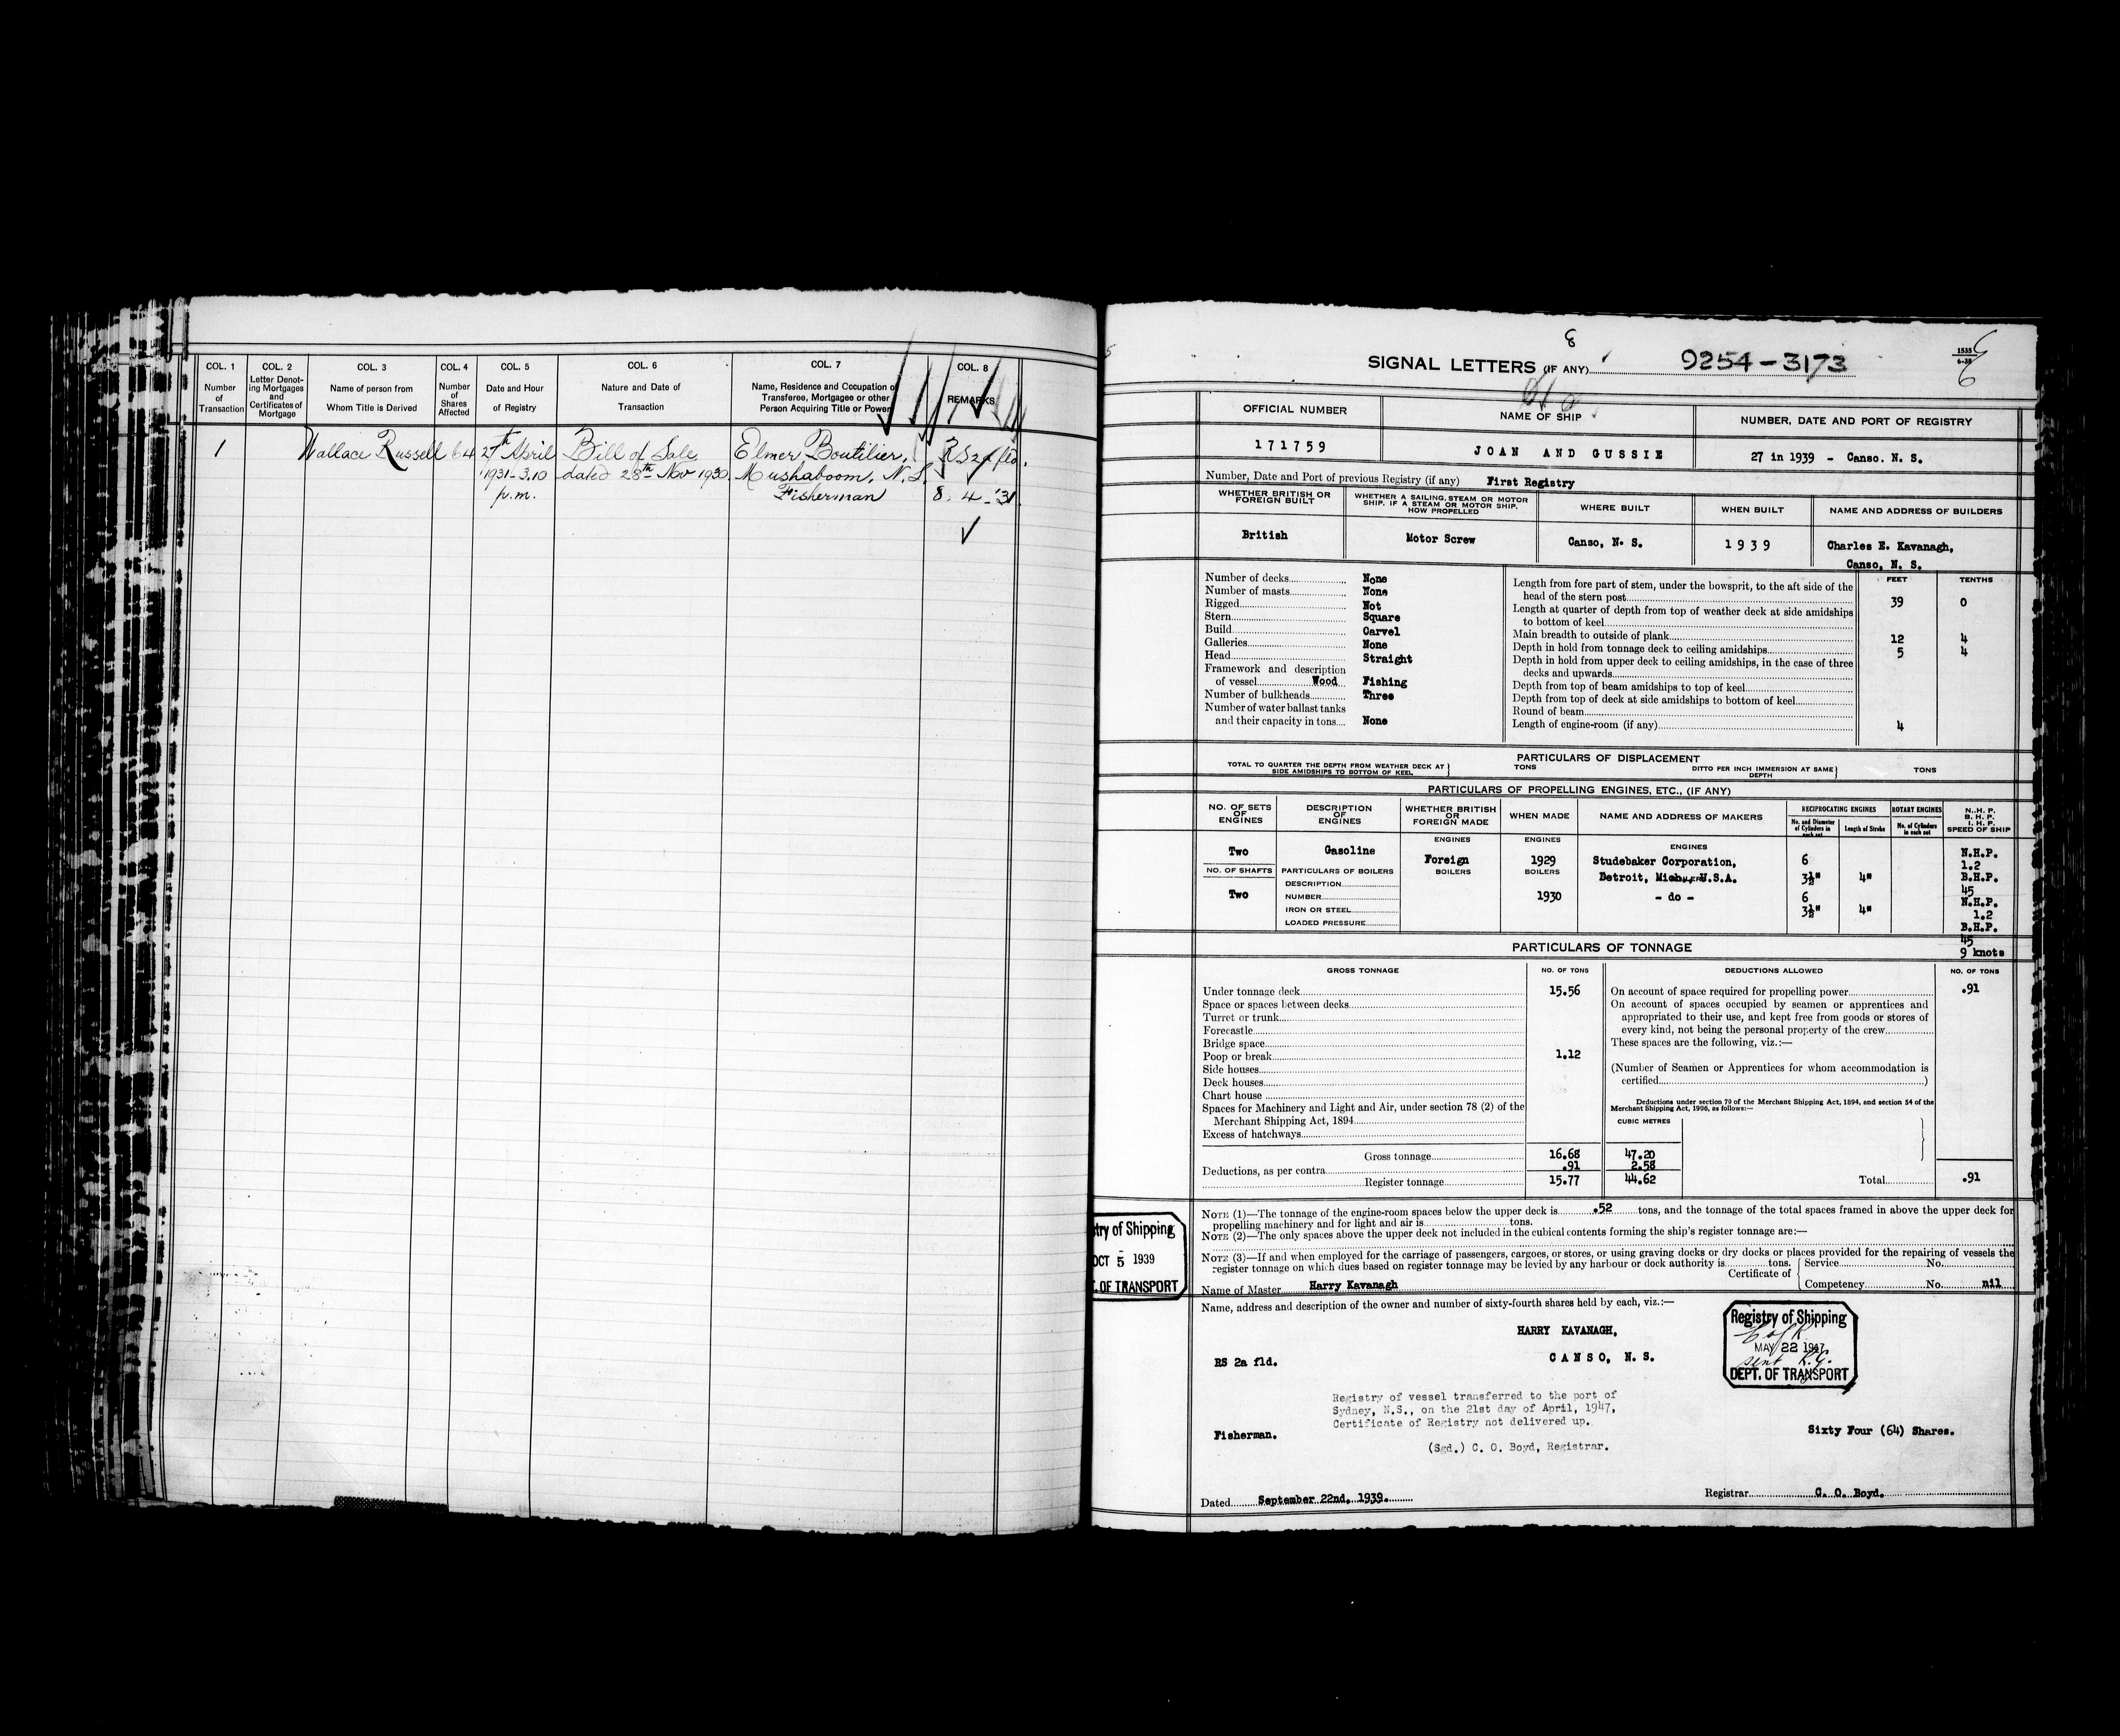 COL. 1
Number
of
Transaction
COL. 2
Letter Denot-
ing Mortgages
and
Certificates of
Mortgage
COL. 3
Name of person from
Whom Title is Derived
COL. 4
Number
of
Shares
Affected
COL. 5
Date and Hour
of Registry
COL. 6
Nature and Date of
Transaction
COL. 7
Name, Residence and Occupation of
Transferee, Mortgagee or other
Person Acquiring Title or Power
COL. 8
REMARKS
1 Wallace Russell 64 27th April Bill of Sale Elmer Boutilier, RS2a fld.
1931-3.10 dated 28th Nov 1930. Mushaboom, N.S.
p.m. Fisherman 8. 4 - '31.
8
SIGNAL LETTERS (IF ANY) 9254-3173
1535
6-38
OFFICIAL NUMBER
NAME OF SHIP
NUMBER, DATE AND PORT OF REGISTRY
171759
JOAN AND GUSSIE
27 in 1939 - Canso. N. S.
Number, Date and Port of previous Registry (if any) First Registry
WHETHER BRITISH OR
FOREIGN BUILT
WHETHER A SAILING, STEAM OR MOTOR
SHIP. IF A STEAM OR MOTOR SHIP.
HOW PROPELLED
WHERE BUILT
WHEN BUILT
NAME AND ADDRESS OF BUILDERS
British
Motor Screw
Canso, N. S.
1939
Charles E. Kavanagh,
Canso, N. S.
Number of decks None
Number of masts None
Rigged Not
Stern Square
Build Carvel
Galleries None
Head Straight
Framework and description
of vessel Wood Fishing
Number of bulkheads Three
Number of water ballast tanks
and their capacity in tons None
FEET TENTHS
Length from fore part of stem, under the bowsprit, to the aft side of the
head of the stern post 39 0
Length at quarter of depth from top of weather deck at side amidships
to bottom of keel
Main breadth to outside of plank 12 4
Depth in hold from tonnage deck to ceiling amidships 5 4
Depth in hold from upper deck to ceiling amidships, in the case of three
decks and upwards
Depth from top of beam amidships to top of keel
Depth from top of deck at side amidships to bottom of keel
Round of beam
Length of engine-room (if any) 4
PARTICULARS OF DISPLACEMENT
TOTAL TO QUARTER THE DEPTH FROM WEATHER DECK AT
SIDE AMIDSHIPS TO BOTTOM OF KEEL
TONS
DITTO PER INCH IMMERSION AT SAME
DEPTH
TONS
PARTICULARS OF PROPELLING ENGINES, ETC., (IF ANY)
NO. OF SETS
OF
ENGINES
DESCRIPTION
OF
ENGINES
WHETHER BRITISH
OR
FOREIGN MADE
WHEN MADE
NAME AND ADDRESS OF MAKERS
RECIPROCATING ENGINES
No. and Diameter
of Cylinders in
each set
Length of Stroke
ROTARY ENGINES
No. of Cylinders
in each set
N.H.P.
B.H.P.
I.H.P.
SPEED OF SHIP
ENGINES ENGINES ENGINES
Two Gasoline Foreign 1929 Studebaker Corporation, 6 N.H.P.
1.2
NO. OF SHAFTS PARTICULARS OF BOILERS BOILERS BOILERS Detroit, Mich. U.S.A. 3½" 4" B.H.P.
DESCRIPTION 45
Two NUMBER 1930 - do - 6 N.H.P.
IRON OR STEEL 3½" 4" 1.2
LOADED PRESSURE B.H.P.
45
9 knots
PARTICULARS OF TONNAGE
GROSS TONNAGE NO. OF TONS DEDUCTIONS ALLOWED NO. OF TONS
Under tonnage deck 15.56
Space or spaces between decks
Turret or trunk
Forecastle
Bridge space
Poop or break 1.12
Side houses
Deck houses
Chart house
Spaces for Machinery and Light and Air, under section 78 (2) of the
Merchant Shipping Act, 1894
Excess of hatchways
Gross tonnage 16.68 47.20
Deductions, as per contra .91 2.58
Register tonnage 15.77 44.62
On account of space required for propelling power .91
On account of spaces occupied by seamen or apprentices and
appropriated to their use, and kept free from goods or stores of
every kind, not being the personal property of the crew
These spaces are the following, viz.:—
(Number of Seamen or Apprentices for whom accommodation is
certified)
Deductions under section 79 of the Merchant Shipping Act, 1894, and section 54 of the
Merchant Shipping Act, 1906, as follows:—
CUBIC METRES
Total .91
NOTE (1)—The tonnage of the engine-room spaces below the upper deck is .52 tons, and the tonnage of the total spaces framed in above the upper deck for
propelling machinery and for light and air is tons.
NOTE (2)—The only spaces above the upper deck not included in the cubical contents forming the ship's register tonnage are:—
NOTE (3)—If and when employed for the carriage of passengers, cargoes, or stores, or using graving docks or dry docks or places provided for the repairing of vessels the
register tonnage on which dues based on register tonnage may be levied by any harbour or dock authority is tons.
Certificate of Service No.
Competency No. nil
Name of Master Harry Kavanagh
try of Shipping
OCT 5 1939
T. OF TRANSPORT
Name, address and description of the owner and number of sixty-fourth shares held by each, viz.:—
HARRY KAVANAGH,
RS 2a fld.
CANSO, N. S.
Registry of Shipping
C of R
MAY 22 1947
sent R.G.
DEPT. OF TRANSPORT
Registry of vessel transferred to the port of
Sydney, N.S., on the 21st day of April, 1947,
Certificate of Registry not delivered up.
Fisherman.
Sixty Four (64) Shares.
(Sgd.) C. O. Boyd, Registrar.
Dated September 22nd, 1939.
Registrar C. O. Boyd.